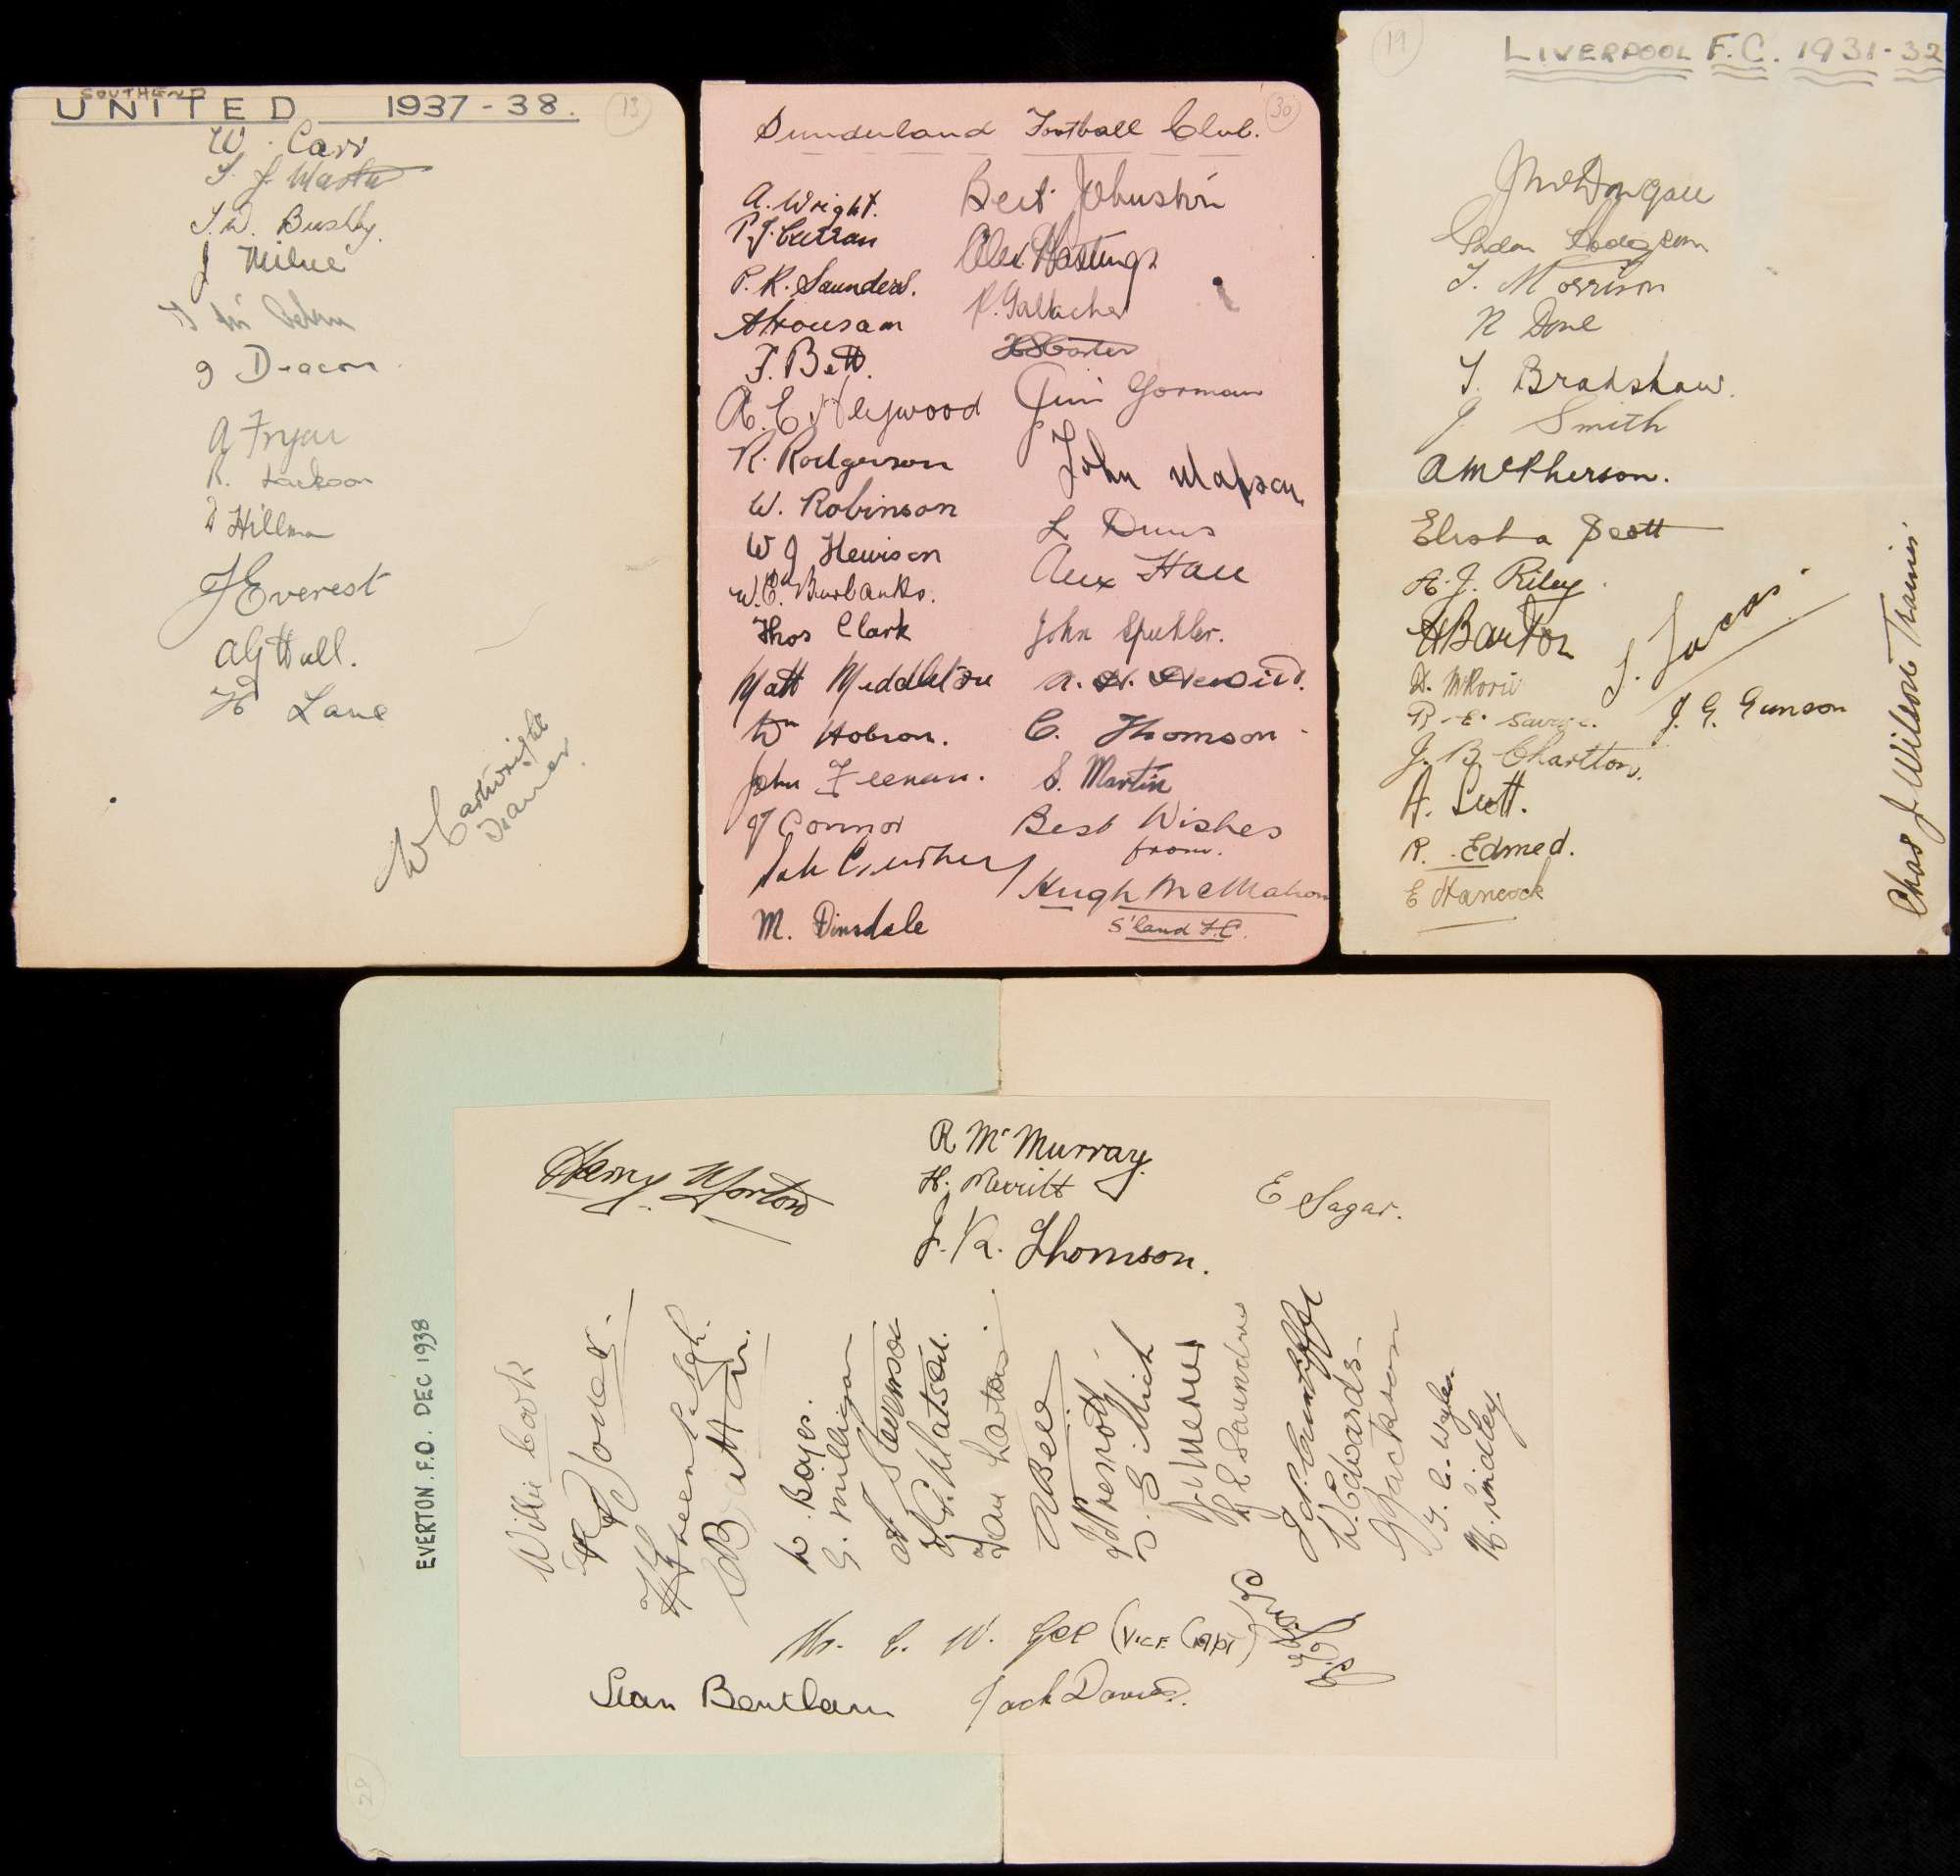 SOUTHEND
UNITED 1937-38.
13
W. Carr
T.W. Bushby.
J Milne
J Deacon
A Fryer
R. Jackson
D Hillman
J Everest
A G Hall.
H Lane
W Cartwright
Trainer.
Sunderland Football Club.
30
A. Wright.
P.J. Curran
P. K. Saunders.
A Housam
F. Bett.
A. E. Heywood
R. Rodgerson
W. Robinson
W J Hewison
W. E. Burbanks.
Thos Clark
Matt Middleton
Wm Hobson.
John Feenan.
J Connor
M. Dinsdale
Bert Johnston
Alex. Hastings
P. Gallacher
H S Carter
Jim Gorman
John Mapson
L Duns
Alex Hall
John Spuhler.
C. Thomson
S. Martin
Best Wishes
from.
Hugh McMahon
S'land F.C.
LIVERPOOL F.C. 1931-32
19
J McDougall
Gordon Hodgson
T. Morrison
R Done
T. Bradshaw.
J. Smith
A McPherson.
Elisha Scott
A. J. Riley.
H Barton
T. Lucas.
R. E. Savage.
J. G. Gunson
J. B. Charlton.
R. Edmed.
E Hancock
Chas J Wilson Trainer
EVERTON. F.C. DEC 1938
29
Harry Morton
R McMurray.
H. Merritt
J. R. Thomson.
E Sagar.
Willie Cook
H Greenhalgh.
C Britton.
W. Boyes.
G. Milligan
A Stevenson
T. G. Watson.
R Bell
J Mercer
G E Saunders
J N Cunliffe
W. Edwards
G Jackson
M. Lindley.
Mr. C. W. Gee (Vice Capt)
Stan Bentham
Jack Davies.